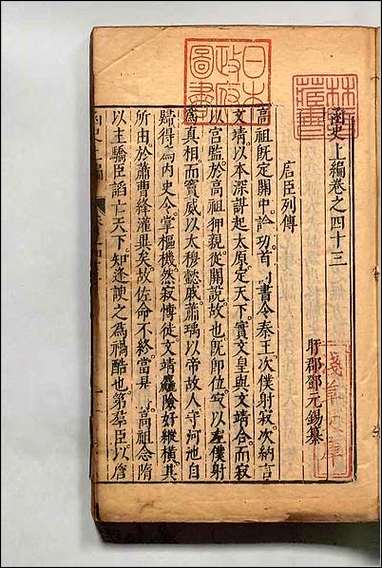 函史上編卷之四十三
盱郡鄧元錫纂
唐臣列傳
高祖既定關中論功首尚書令秦王次僕射寂次納言
文靖以本深謀起太原定天下實文皇與文靖合而寂
以宮監於高祖狎親從關說故也既即位寂以左僕射
為真相而竇威以太穆懿戚蕭瑀以帝故人守河池自
歸得為內史令掌樞機然寂愽徒文靖麤險好縱橫其
所由於蕭曹絳灌異矣故佐命不終當是 高祖念隋
以主驕臣諂亡天下知逢諛之為禍酷也第羣臣以唐
日本
政府
圖書
林氏
藏書
函史上編